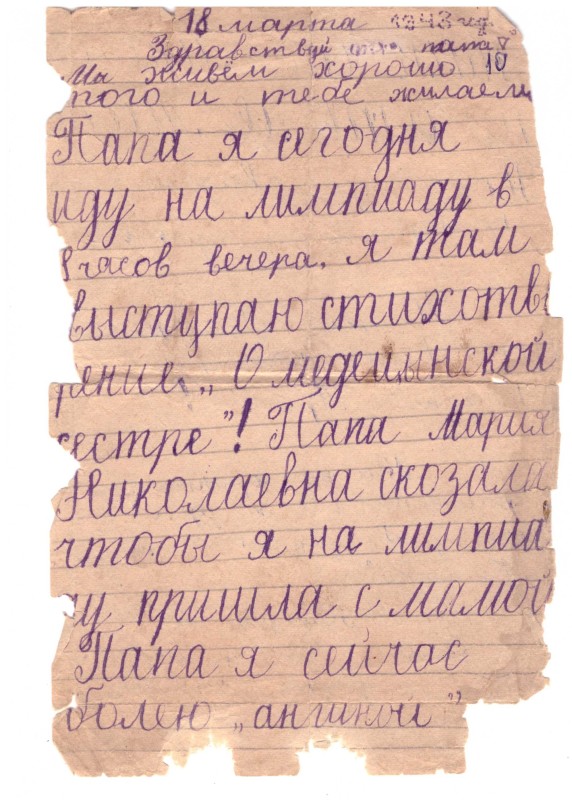 18 марта 1943 год
Здравствуй папа
Мы живём хорошо 10
того и тебе жилаем
Папа я сегодня
иду на лимпиаду в
часов вечера. я там
выступаю стихотв
рение „О медецынской
сестре"! Папа Мария
Николаевна скозала
чтобы я на лимпиа
ду пришла с мамой
Папа я сейчас
болею „ангиной"